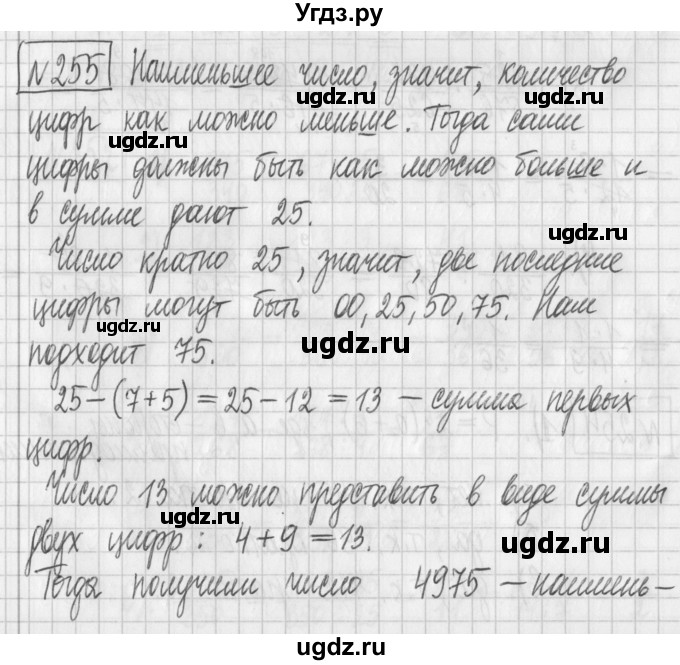 Угдз.ру
№255 Наименьшее число, значит, количество
ugdz.ru
цифр как можно меньше. Тогда сами
ugdz.ru
цифры должны быть как можно больше и
в сумме дают 25.
ugdz.ru
Число кратно 25, значит, две последние
цифры могут быть 00, 25, 50, 75. Нам
ugdz.ru
ugdz.ru
подходит 75.
25-(7+5)=25-12=13 – сумма первых
цифр.
Число 13 можно представить в виде суммы
ugdz.ru
двух цифр: 4+9=13.
ugdz.ru
Тогда получили число 4975 – наимень-
ugdz.ru